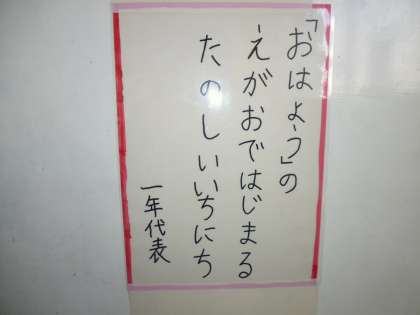 「おはよう」の
えがおではじまる
たのしいいちにち
一年代表